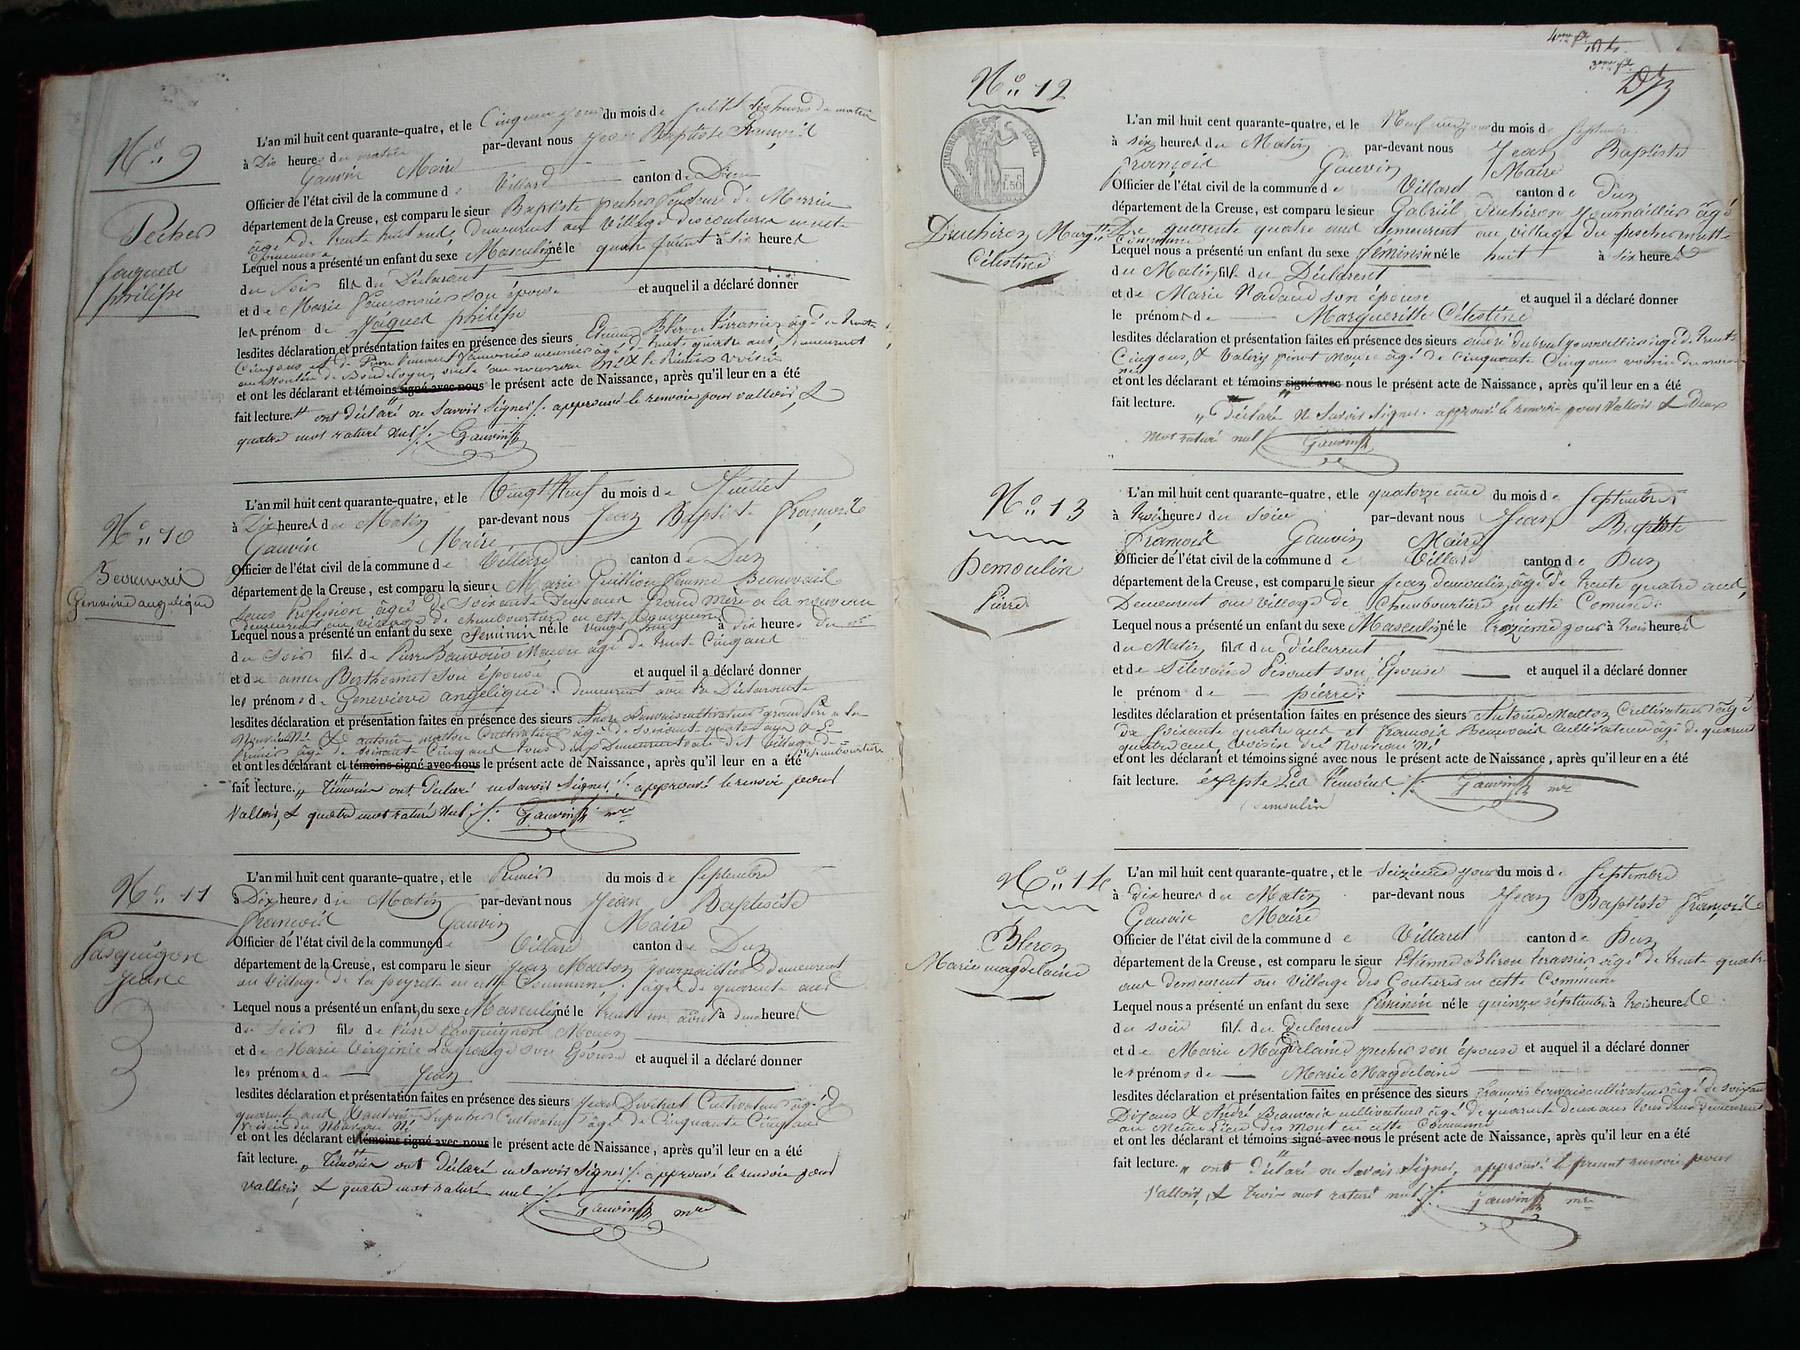 N° 9
Pecher
Jacques
philippe
L'an mil huit cent quarante-quatre, et le Cinquième jour du mois de Juillet dix heures du matin
à Dix heures du matin par-devant nous Jean Baptiste François
Gauvin Maire
Officier de l'état civil de la commune de Villard canton de Dun
département de la Creuse, est comparu le sieur Baptiste pecher
âgé de trente huit ans, demeurant au Village des coutures
Commune
Lequel nous a présenté un enfant du sexe Masculin né le quatre à Six heures
du Soir fils du Déclarant
et de Marie son épouse et auquel il a déclaré donner
les prénom de Jaques philipe
lesdites déclaration et présentation faites en présence des sieurs Etienne Bléron terrassier âgé de trente
Cinq ans et
et ont les déclarant et témoins signé avec nous le présent acte de Naissance, après qu'il leur en a été
fait lecture. ont déclaré ne Savoir Signer. approuvé le renvoie pour valloir, &
quatre mot raturé nul. Gauvin
N° 10
Beauvais
Geneviève angelique
L'an mil huit cent quarante-quatre, et le Vingt Neuf du mois de Juillet
à Dix heures du Matin par-devant nous Jean Baptiste François
Gauvin Maire
Officier de l'état civil de la commune de Villard canton de Dun
département de la Creuse, est comparu le sieur Marie femme Beauvais
Sans Profession âgée de Soixante ans Grand Mère a la nouveau
demeurant au village de chambourtière en cette Commune
Lequel nous a présenté un enfant du sexe Feminin né le à dix heures du
du Soir fils de Pierre Beauvais Maçon âgé de trente Cinq ans
et de anne Berthomet Son épouse et auquel il a déclaré donner
les prénoms de Genevieve angelique. demeurant avec la Déclarante
lesdites déclaration et présentation faites en présence des sieurs cultivateur grand Père a la
et ont les déclarant et témoins signé avec nous le présent acte de Naissance, après qu'il leur en a été
fait lecture. Témoin ont Déclaré ne Savoir Signer. approuvé le renvoi pour
Valloir, & quatre mot raturé Nul. Gauvin mre
N° 11
Pasquignon
Jean
L'an mil huit cent quarante-quatre, et le Premier du mois de Septembre
à Dix heures du Matin par-devant nous Jean Baptiste
François Gauvin Maire
Officier de l'état civil de la commune de Villard canton de Dun
département de la Creuse, est comparu le sieur Jean Malton journaillier demeurent
au Village de la peyrolle en cette Commune, âgé de quarante ans
Lequel nous a présenté un enfant du sexe Masculin né le trent un août à deux heures
du Soir fils de Pierre Pasquignon Maçon
et de Marie Virginie Lagrange son Epouse et auquel il a déclaré donner
les prénoms de Jean
lesdites déclaration et présentation faites en présence des sieurs Jean Cultivateur âgé de
quarante ans & antoine Cultivateur âgé de Cinquante Cinq ans
voisin du Nouveau Né
et ont les déclarant et témoins signé avec nous le présent acte de Naissance, après qu'il leur en a été
fait lecture. Témoin ont Déclaré ne Savoir Signer. approuvé le renvoie pour
valloir, & quatre mot raturé nul. Gauvin mre
N° 12
TIMBRE ROYAL
1.50
Duchiron Margte
Célestine
L'an mil huit cent quarante-quatre, et le Neuf du mois de Septembre
à six heures du Matin par-devant nous Jean Baptiste
François Gauvin Maire
Officier de l'état civil de la commune de Villard canton de Dun
département de la Creuse, est comparu le sieur Gabriel Duchiron journaillier âgé
de quarente quatre ans demeurent au village du
Commune
Lequel nous a présenté un enfant du sexe feminin né le huit à six heures
du Matin fils du Déclarent
et de Marie Nadaud son épouse et auquel il a déclaré donner
le prénom de Marguerithe Célestine
lesdites déclaration et présentation faites en présence des sieurs andré journaillier âgé de trente
Cinq ans, & Valéry Maçon âgé de Cinquante Cinq ans voisin du nouveau
né
et ont les déclarant et témoins signé avec nous le présent acte de Naissance, après qu'il leur en a été
fait lecture. déclaré ne Savoir Signer. approuvé le renvoie pour Valloir & Deux
mot raturé nul Gauvin
N° 13
Demoulin
Pierre
L'an mil huit cent quarante-quatre, et le quatorzeième du mois de Septembre
à trois heures du soir par-devant nous Jean Baptiste
François Gauvin Maire
Officier de l'état civil de la commune de Villard canton de Dun
département de la Creuse, est comparu le sieur Jean demoulin âgé de trente quatre ans,
Demeurent au village de Chambourtière en cette Comune
Lequel nous a présenté un enfant du sexe Masculin né le trezieme jour à trois heures
du Matin fils du déclarent
et de Silvaine son Epouse et auquel il a déclaré donner
le prénom de pierre
lesdites déclaration et présentation faites en présence des sieurs Antoine Malton Cultivateur âgé
de Soixante quatre ans et François Beauvais Cultivateur âgé de quarente
quatre ans voisin du Nouveau Né
et ont les déclarant et témoins signé avec nous le présent acte de Naissance, après qu'il leur en a été
fait lecture. éxepte Les témoins. Gauvin mre
Demoulin
N° 14
Bleron
Marie magdelaine
L'an mil huit cent quarante-quatre, et le Seizième jour du mois de Septembre
à dix heures du Matin par-devant nous Jean Baptiste François
Gauvin Maire
Officier de l'état civil de la commune de Villard canton de Dun
département de la Creuse, est comparu le sieur Etienne Bleron terrassier âgé de trente quatre
ans demeurent au Village des Coutures en cette Commune
Lequel nous a présenté un enfant du sexe Féminin né le quinze séptembre à trois heures
du soir fils du Déclarent
et de Marie Magdelaine pecher son épouse et auquel il a déclaré donner
les prénoms de Marie Magdelaine
lesdites déclaration et présentation faites en présence des sieurs François cultivateur âgé de soixante
Dix ans & André Beauvais cultivateur âgé de quarante deux ans tous deux demeurent
au Même Lieu des Mont en cette Commune
et ont les déclarant et témoins signé avec nous le présent acte de Naissance, après qu'il leur en a été
fait lecture. ont déclaré ne Savoir Signer, approuvé le présent renvoie pour
Valloir, & trois mot raturé nul. Gauvin mre